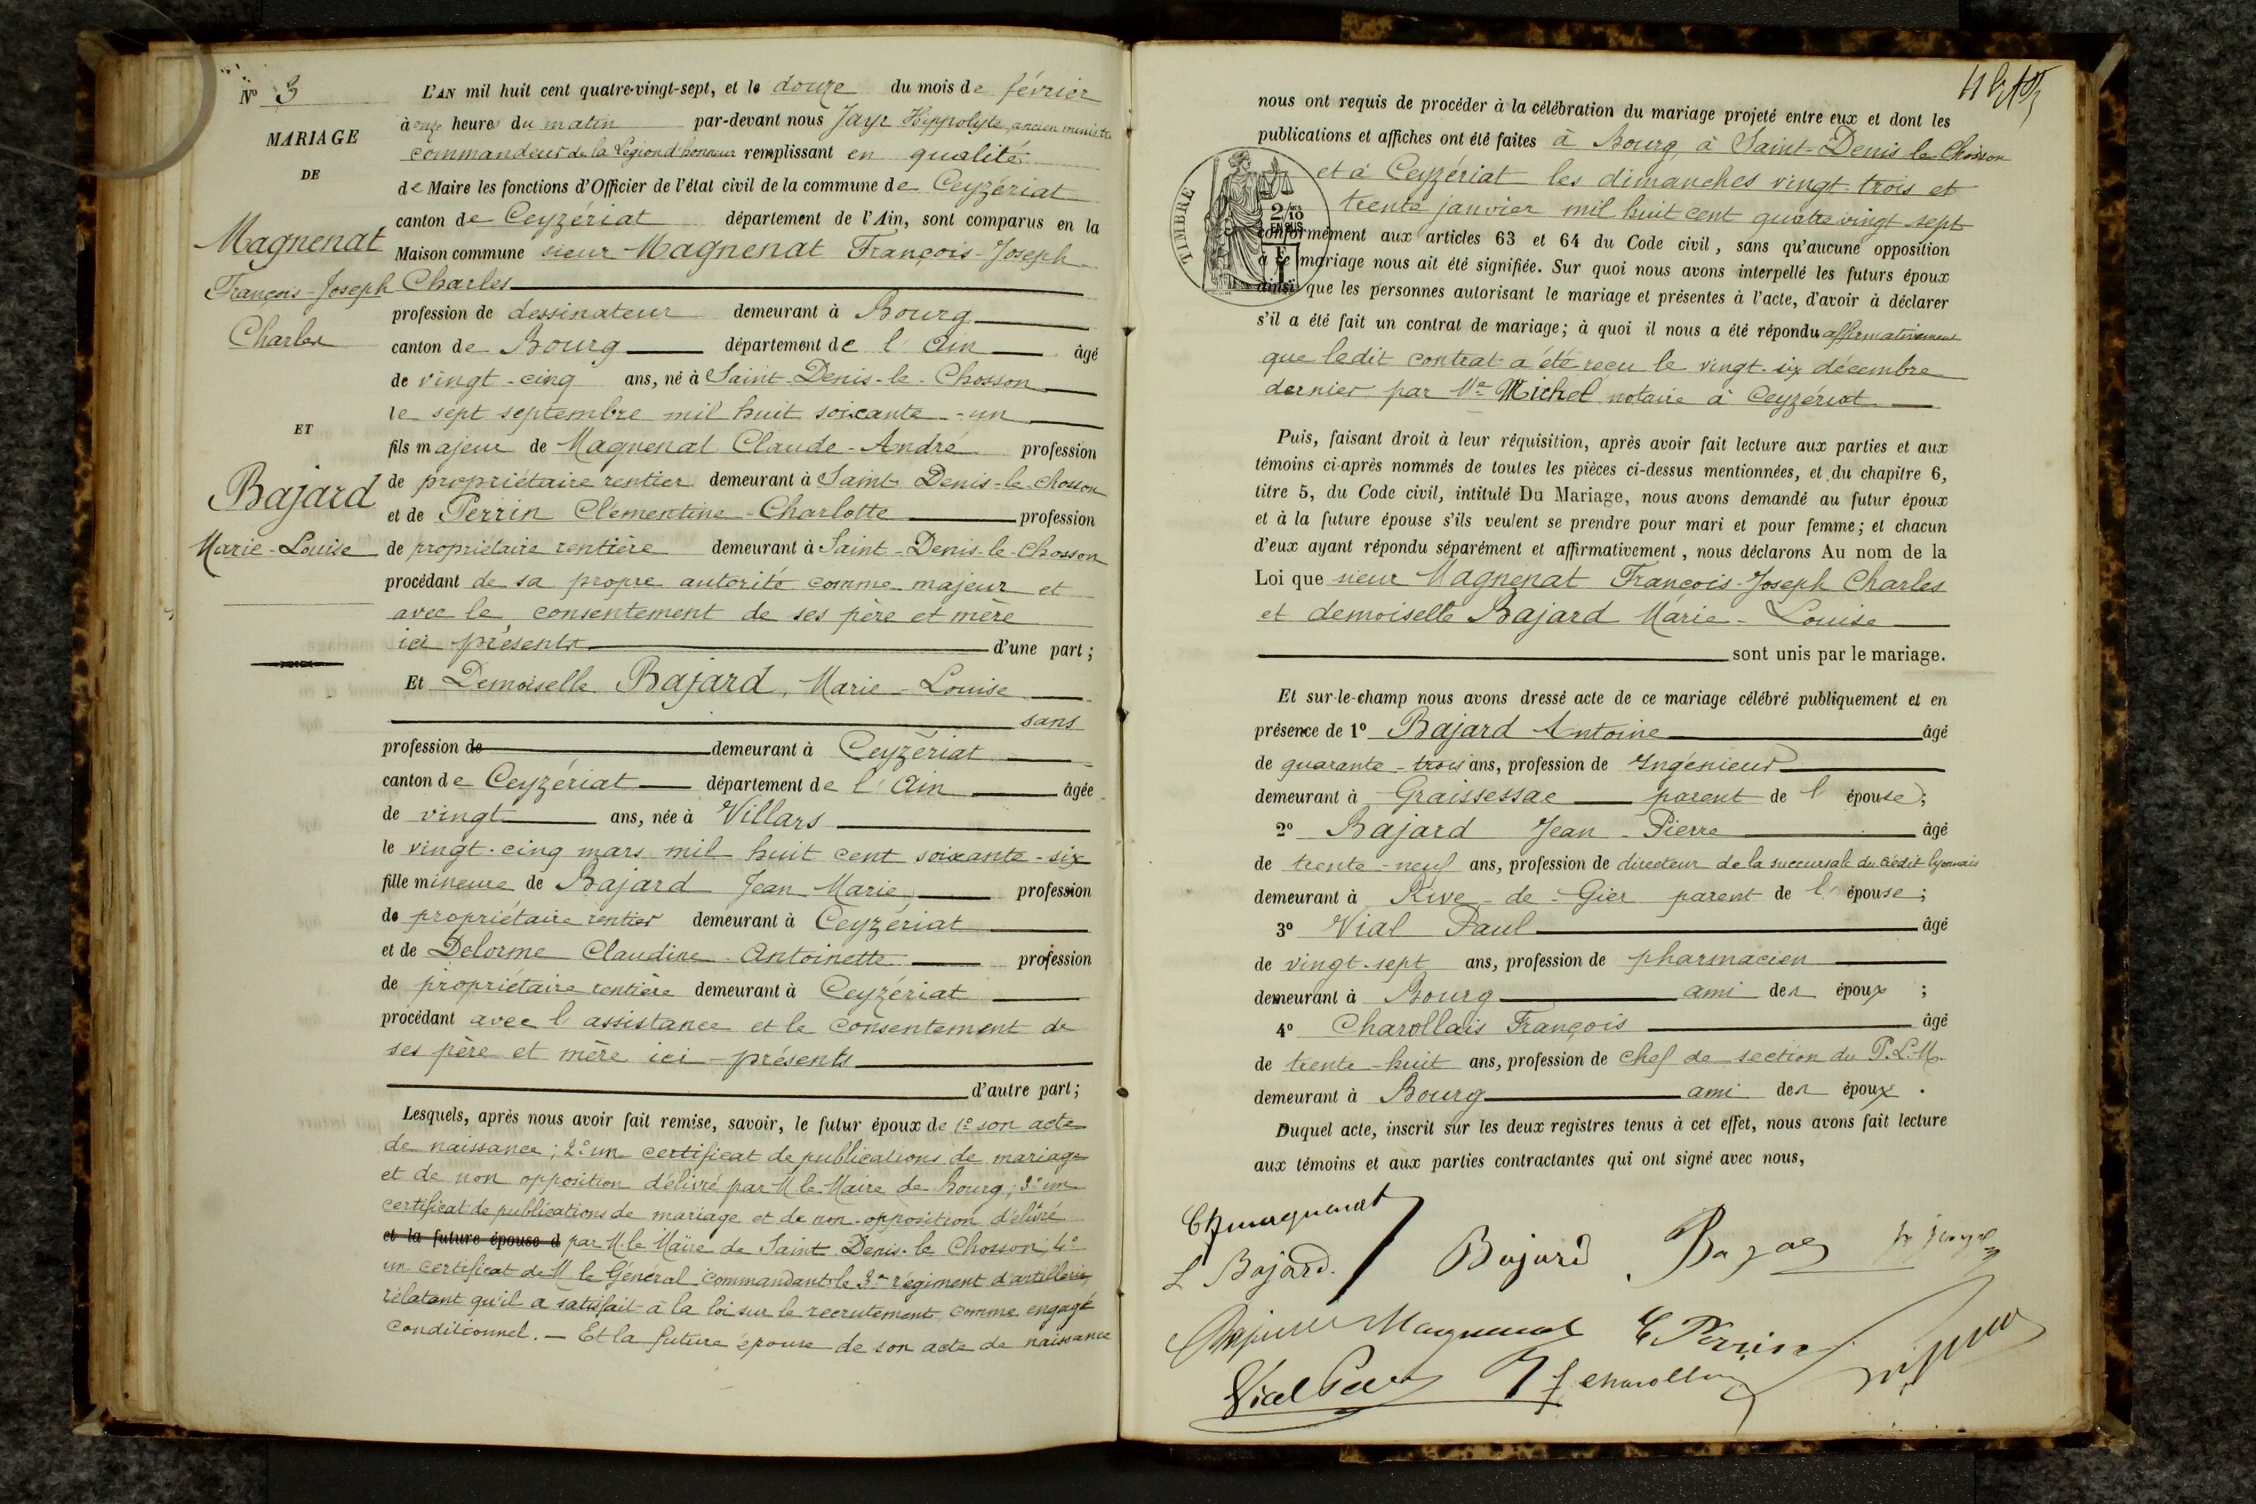 Nº 3
MARIAGE
DE
Magnenat
François-Joseph
Charles
ET
Bajard
Marie-Louise
L'AN mil huit cent quatre-vingt-sept, et le douze du mois de février
à onze heures du matin par-devant nous Jayr Hippolyte, ancien ministre
commandeur de la Légion d'honneur remplissant en qualité
de Maire les fonctions d'Officier de l'état civil de la commune de Ceyzériat
canton de Ceyzériat département de l'Ain, sont comparus en la
Maison commune sieur Magnenat François-Joseph
Charles
profession de dessinateur demeurant à Bourg
canton de Bourg département de l'Ain âgé
de vingt-cinq ans, né à Saint-Denis-le-Chosson
le sept septembre mil huit soixante-un
fils majeur de Magnenat Claude-André profession
de propriétaire rentier demeurant à Saint Denis-le-Chosson
et de Perrin Clémentine-Charlotte profession
de propriétaire rentière demeurant à Saint-Denis-le-Chosson
procédant de sa propre autorité comme majeur et
avec le consentement de ses père et mère
ici présents d'une part;
Et Demoiselle Bajard, Marie-Louise
sans
profession de demeurant à Ceyzériat
canton de Ceyzériat département de l'Ain âgée
de vingt ans, née à Villars
le vingt-cinq mars mil huit cent soixante-six
fille mineure de Bajard Jean Marie profession
de propriétaire rentier demeurant à Ceyzériat
et de Delorme Claudine Antoinette profession
de propriétaire rentière demeurant à Ceyzériat
procédant avec l'assistance et le consentement de
ses père et mère ici-présents
d'autre part;
Lesquels, après nous avoir fait remise, savoir, le futur époux de 1º son acte
de naissance; 2º un certificat de publications de mariage
et de non opposition délivré par M le Maire de Bourg; 3º un
certificat de publications de mariage et de non-opposition délivré
et la future épouse d par M. le Maire de Saint Denis-le Chosson; 4º
un certificat de M le Général commandant le 3e régiment d'artillerie,
relatant qu'il a satisfait à la loi sur le recrutement, comme engagé
conditionnel. — Et la future épouse de son acte de naissance
nous ont requis de procéder à la célébration du mariage projeté entre eux et dont les
publications et affiches ont été faites à Bourg, à Saint-Denis le Chosson
et à Ceyzériat les dimanches vingt-trois et
trente janvier mil huit cent quatre vingt sept
TIMBRE
2/10
EN SUS
conformément aux articles 63 et 64 du Code civil, sans qu'aucune opposition
à ce mariage nous ait été signifiée. Sur quoi nous avons interpellé les futurs époux
ainsi que les personnes autorisant le mariage et présentes à l'acte, d'avoir à déclarer
s'il a été fait un contrat de mariage; à quoi il nous a été répondu affirmativement
que ledit contrat a été reçu le vingt-six décembre
dernier par Me Michel notaire à Ceyzériat
Puis, faisant droit à leur réquisition, après avoir fait lecture aux parties et aux
témoins ci-après nommés de toutes les pièces ci-dessus mentionnées, et du chapitre 6,
titre 5, du Code civil, intitulé Du Mariage, nous avons demandé au futur époux
et à la future épouse s'ils veulent se prendre pour mari et pour femme; et chacun
d'eux ayant répondu séparément et affirmativement, nous déclarons Au nom de la
Loi que sieur Magnenat François-Joseph Charles
et demoiselle Bajard Marie-Louise
sont unis par le mariage.
Et sur-le-champ nous avons dressé acte de ce mariage célébré publiquement et en
présence de 1º Bajard Antoine âgé
de quarante-trois ans, profession de Ingénieur
demeurant à Graissessac parent de l'épouse;
2º Bajard Jean-Pierre âgé
de trente-neuf ans, profession de directeur de la succursale du Crédit lyonnais
demeurant à Rive-de-Gier parent de l'épouse;
3º Vial Paul âgé
de vingt-sept ans, profession de pharmacien
demeurant à Bourg ami des époux;
4º Charollais François âgé
de trente-huit ans, profession de chef de section du P.L.M.
demeurant à Bourg ami des époux.
Duquel acte, inscrit sur les deux registres tenus à cet effet, nous avons fait lecture
aux témoins et aux parties contractantes qui ont signé avec nous,
Ch magnenat
L Bajard. Bajard
Magnenat C Perrin
Vial Paul